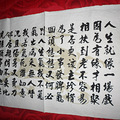 人生就像一場戲
因為有緣才相聚
相扶到老不容易
是否更該去珍惜
為了小事發脾氣
回頭想想又何必
別人生氣我不氣
氣出病來無人替
我若氣死誰如意